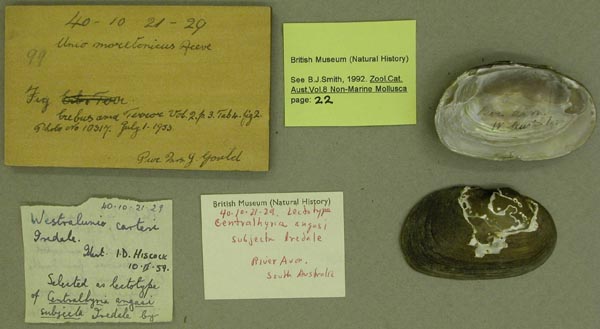 40-10 21-29
99
Unio moretonicus Reeve
Fig
Erebus and Terror Vol. 2. p 3. Tab 4. fig 2.
Photo No 10317. July 1. 1933.
Pur Mrs J. Gould
British Museum (Natural History)
See B.J.Smith, 1992. Zool.Cat.
Aust.Vol.8 Non-Marine Mollusca
page: 22
40-10-21-29
Westralunio carteri
Iredale.
Det. I.D. Hiscock
10·II·59.
Selected as lectotype
of Centralhyria angasi
subjecta Iredale by
British Museum (Natural History)
40-10-21-29. Lectotype
Centralhyria angasi
subjecta Iredale
River Avon.
South Australia